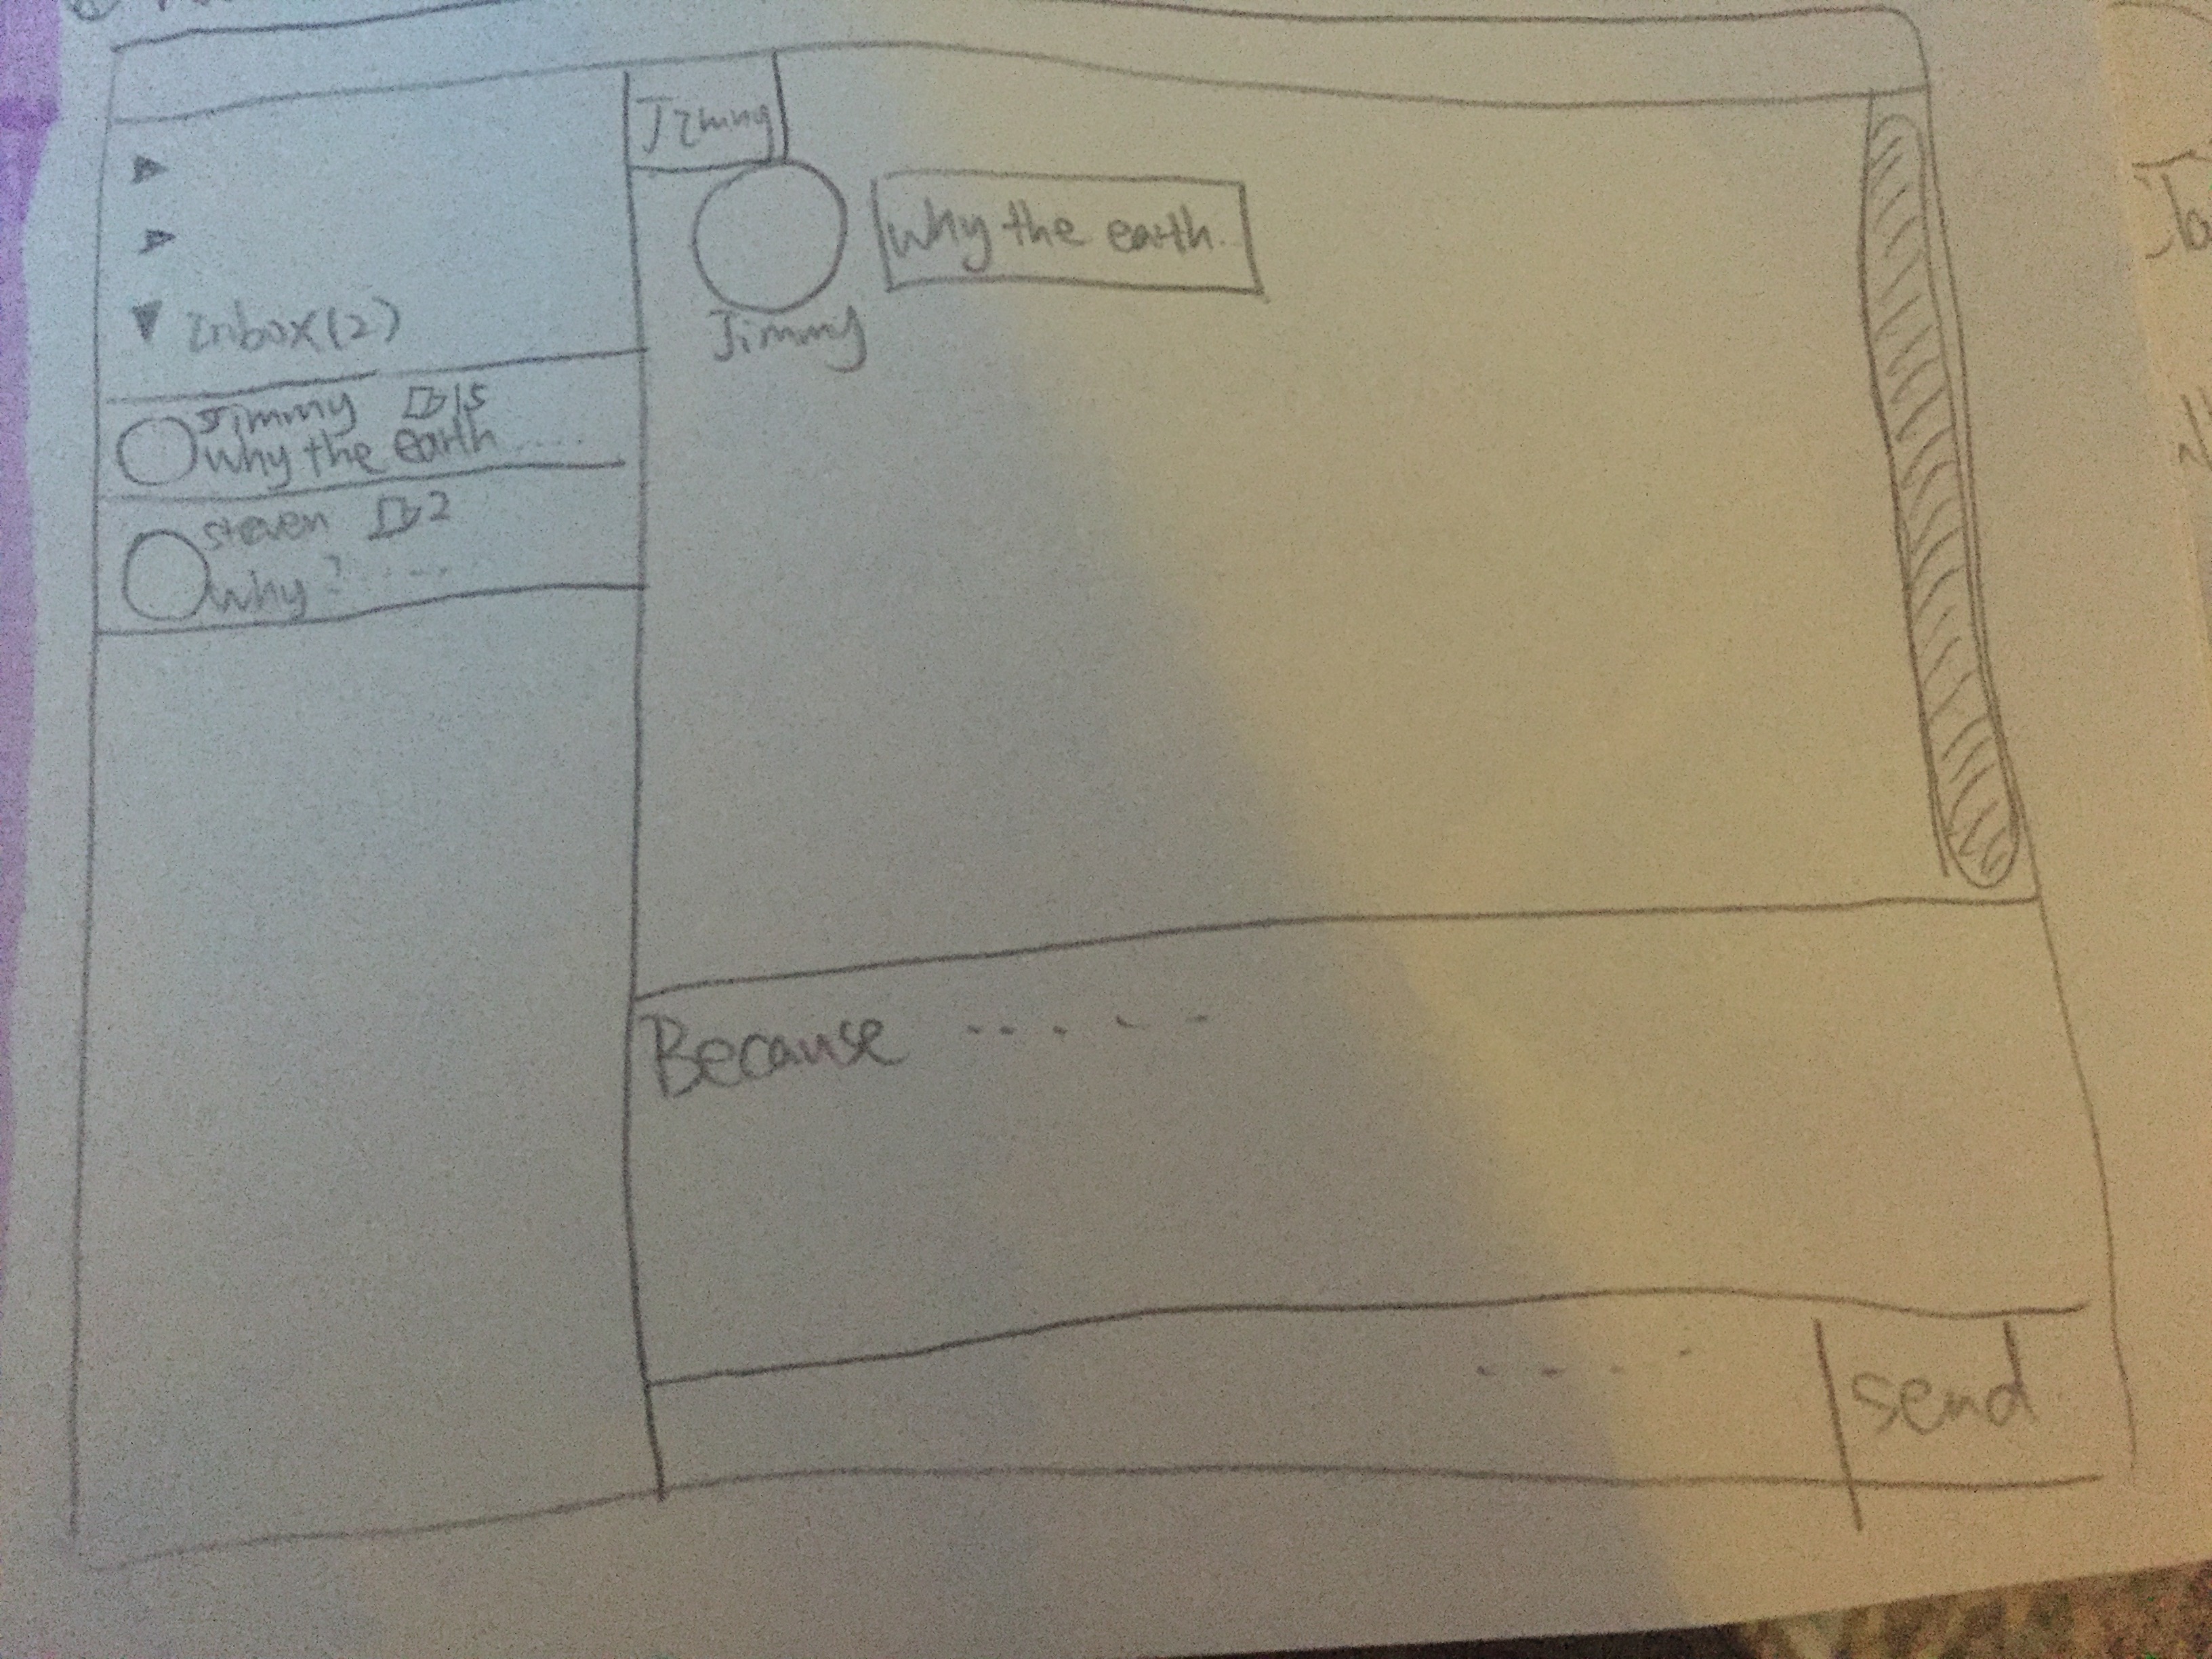 Jimmy
Inbox(2)
Jimmy 15
Why the earth.....
Steven 2
Why?...
Jimmy
Why the earth..
Because .....
....
Send